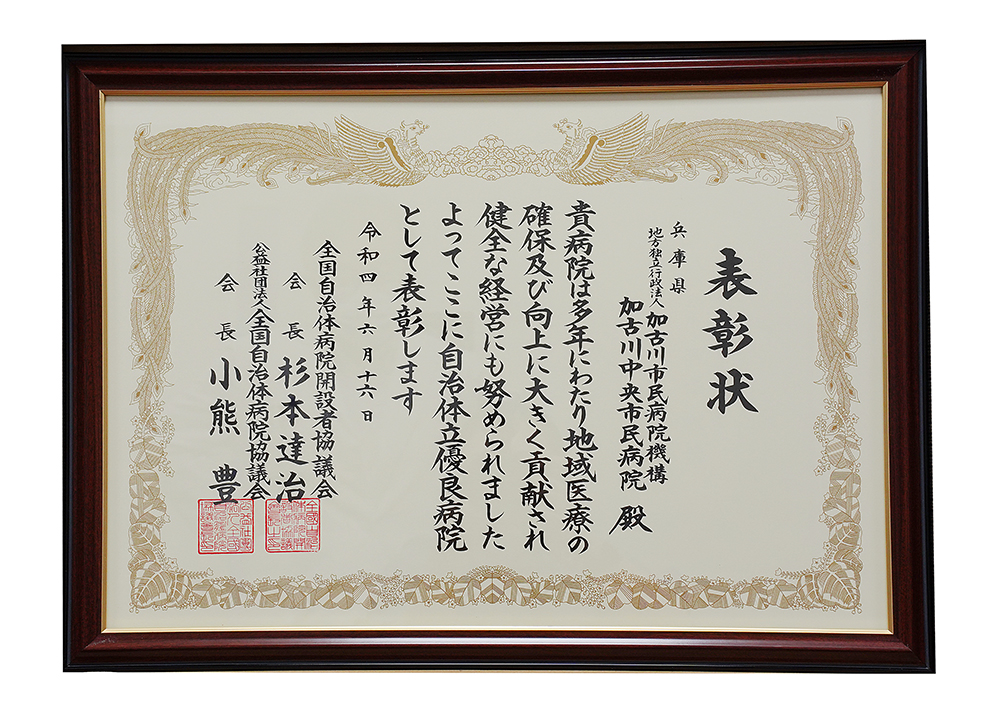 表彰状
兵庫県
地方独立行政法人加古川市民病院機構
加古川中央市民病院 殿
貴病院は多年にわたり地域医療の
確保及び向上に大きく貢献され
健全な経営にも努められました
よってここに自治体立優良病院
として表彰します
令和四年六月十六日
全国自治体病院開設者協議会
会長 杉本達治
公益社団法人全国自治体病院協議会
会長 小熊豊